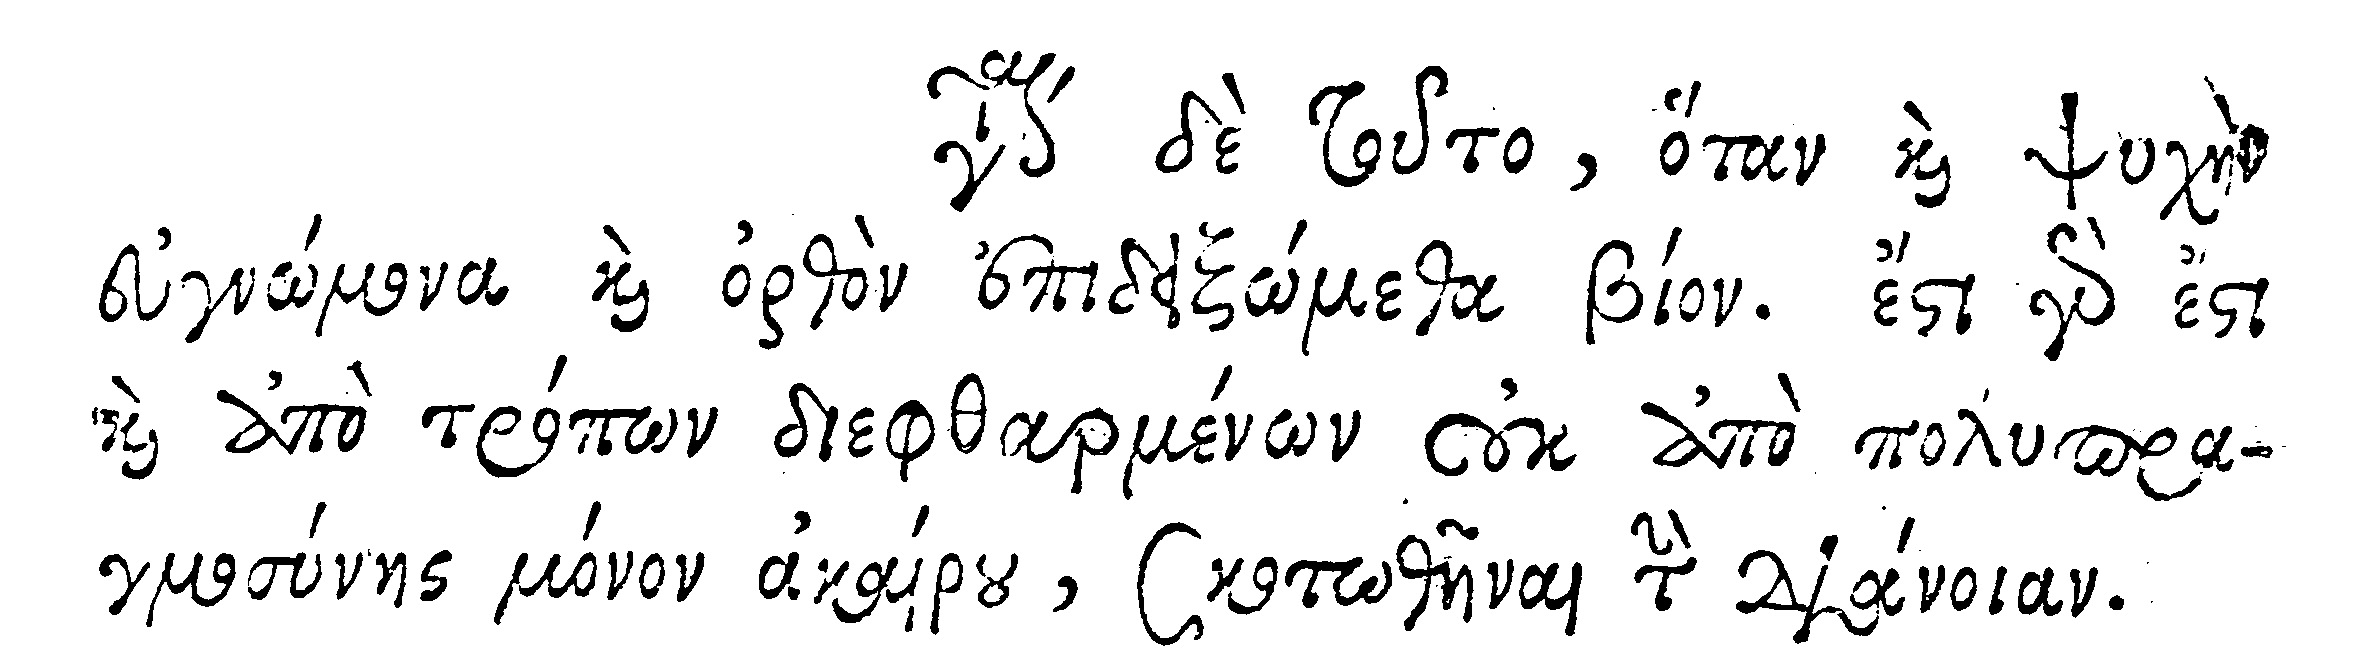 γίνεται δὲ τοῦτο, ὅταν καὶ ψυχὴν
εὐγνώμονα καὶ ὀρθὸν ἐπιδειξώμεθα βίον. ἔστι γὰρ ἔστι
καὶ ἀπὸ τρόπων διεφθαρμένων οὐκ ἀπὸ πολυπρα-
γμοσύνης μόνον ἀκαίρου, σκοτωθῆναι τὴν διάνοιαν.